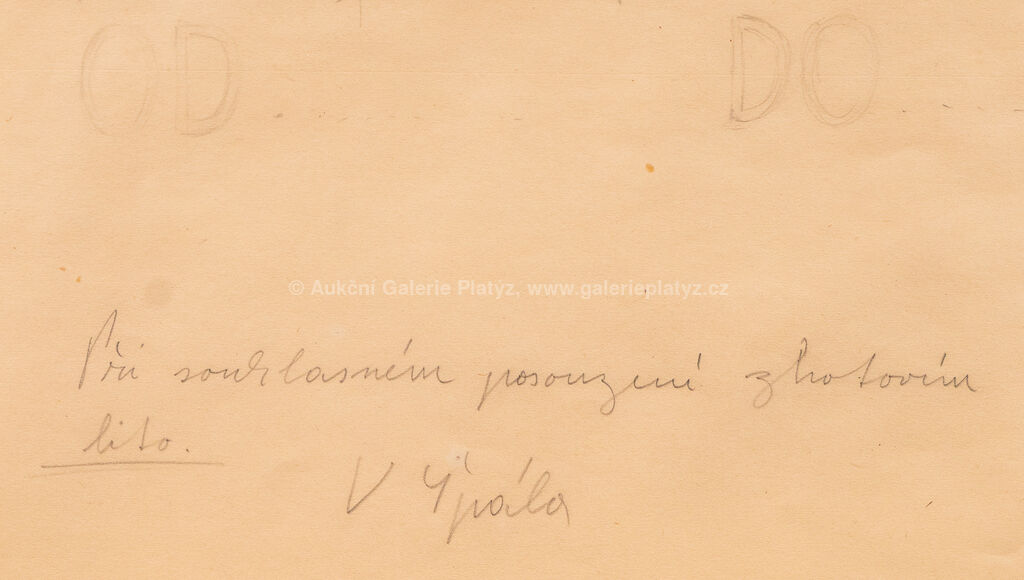 OD DO
© Aukční Galerie Platýz, www.galerieplatyz.cz
Při souhlasném posouzení zhotovím
lito.
V Špála